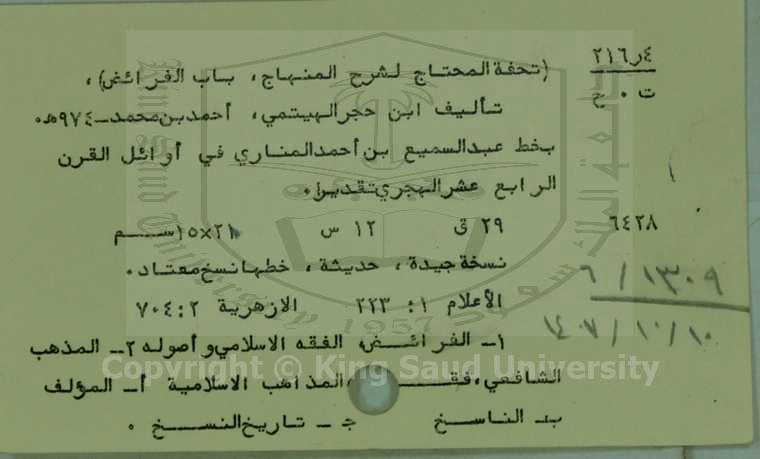 ٢١٦ر٤
ت ٠ ح
(تحفة المحتاج لشرح المنهاج، باب الفرائض)،
تأليف ابن حجر الهيتمي، أحمد بن محمد ـ ٩٧٤هـ٠
بخط عبدالسميع بن أحمد المناري في أوائل القرن
الرابع عشر الهجري تقديرا٠
٦٤٢٨
٢٩ ق ١٢ س ٢١×١٥ سم
نسخة جيدة، حديثة، خطها نسخ معتاد٠
الأعلام ١: ٢٢٣ الازهرية ٢: ٧٠٤
١ـ الفرائض، الفقه الاسلامي وأصوله ٢ـ المذهب
الشافعي، فقه المذاهب الاسلامية أـ المؤلف
بـ الناسخ جـ ـ تاريخ النسخ ٠
٦ / ١٣٠٩
١٤٠٧ / ١٠ / ١٠
Copyright © King Saud University
King Saud University
1957